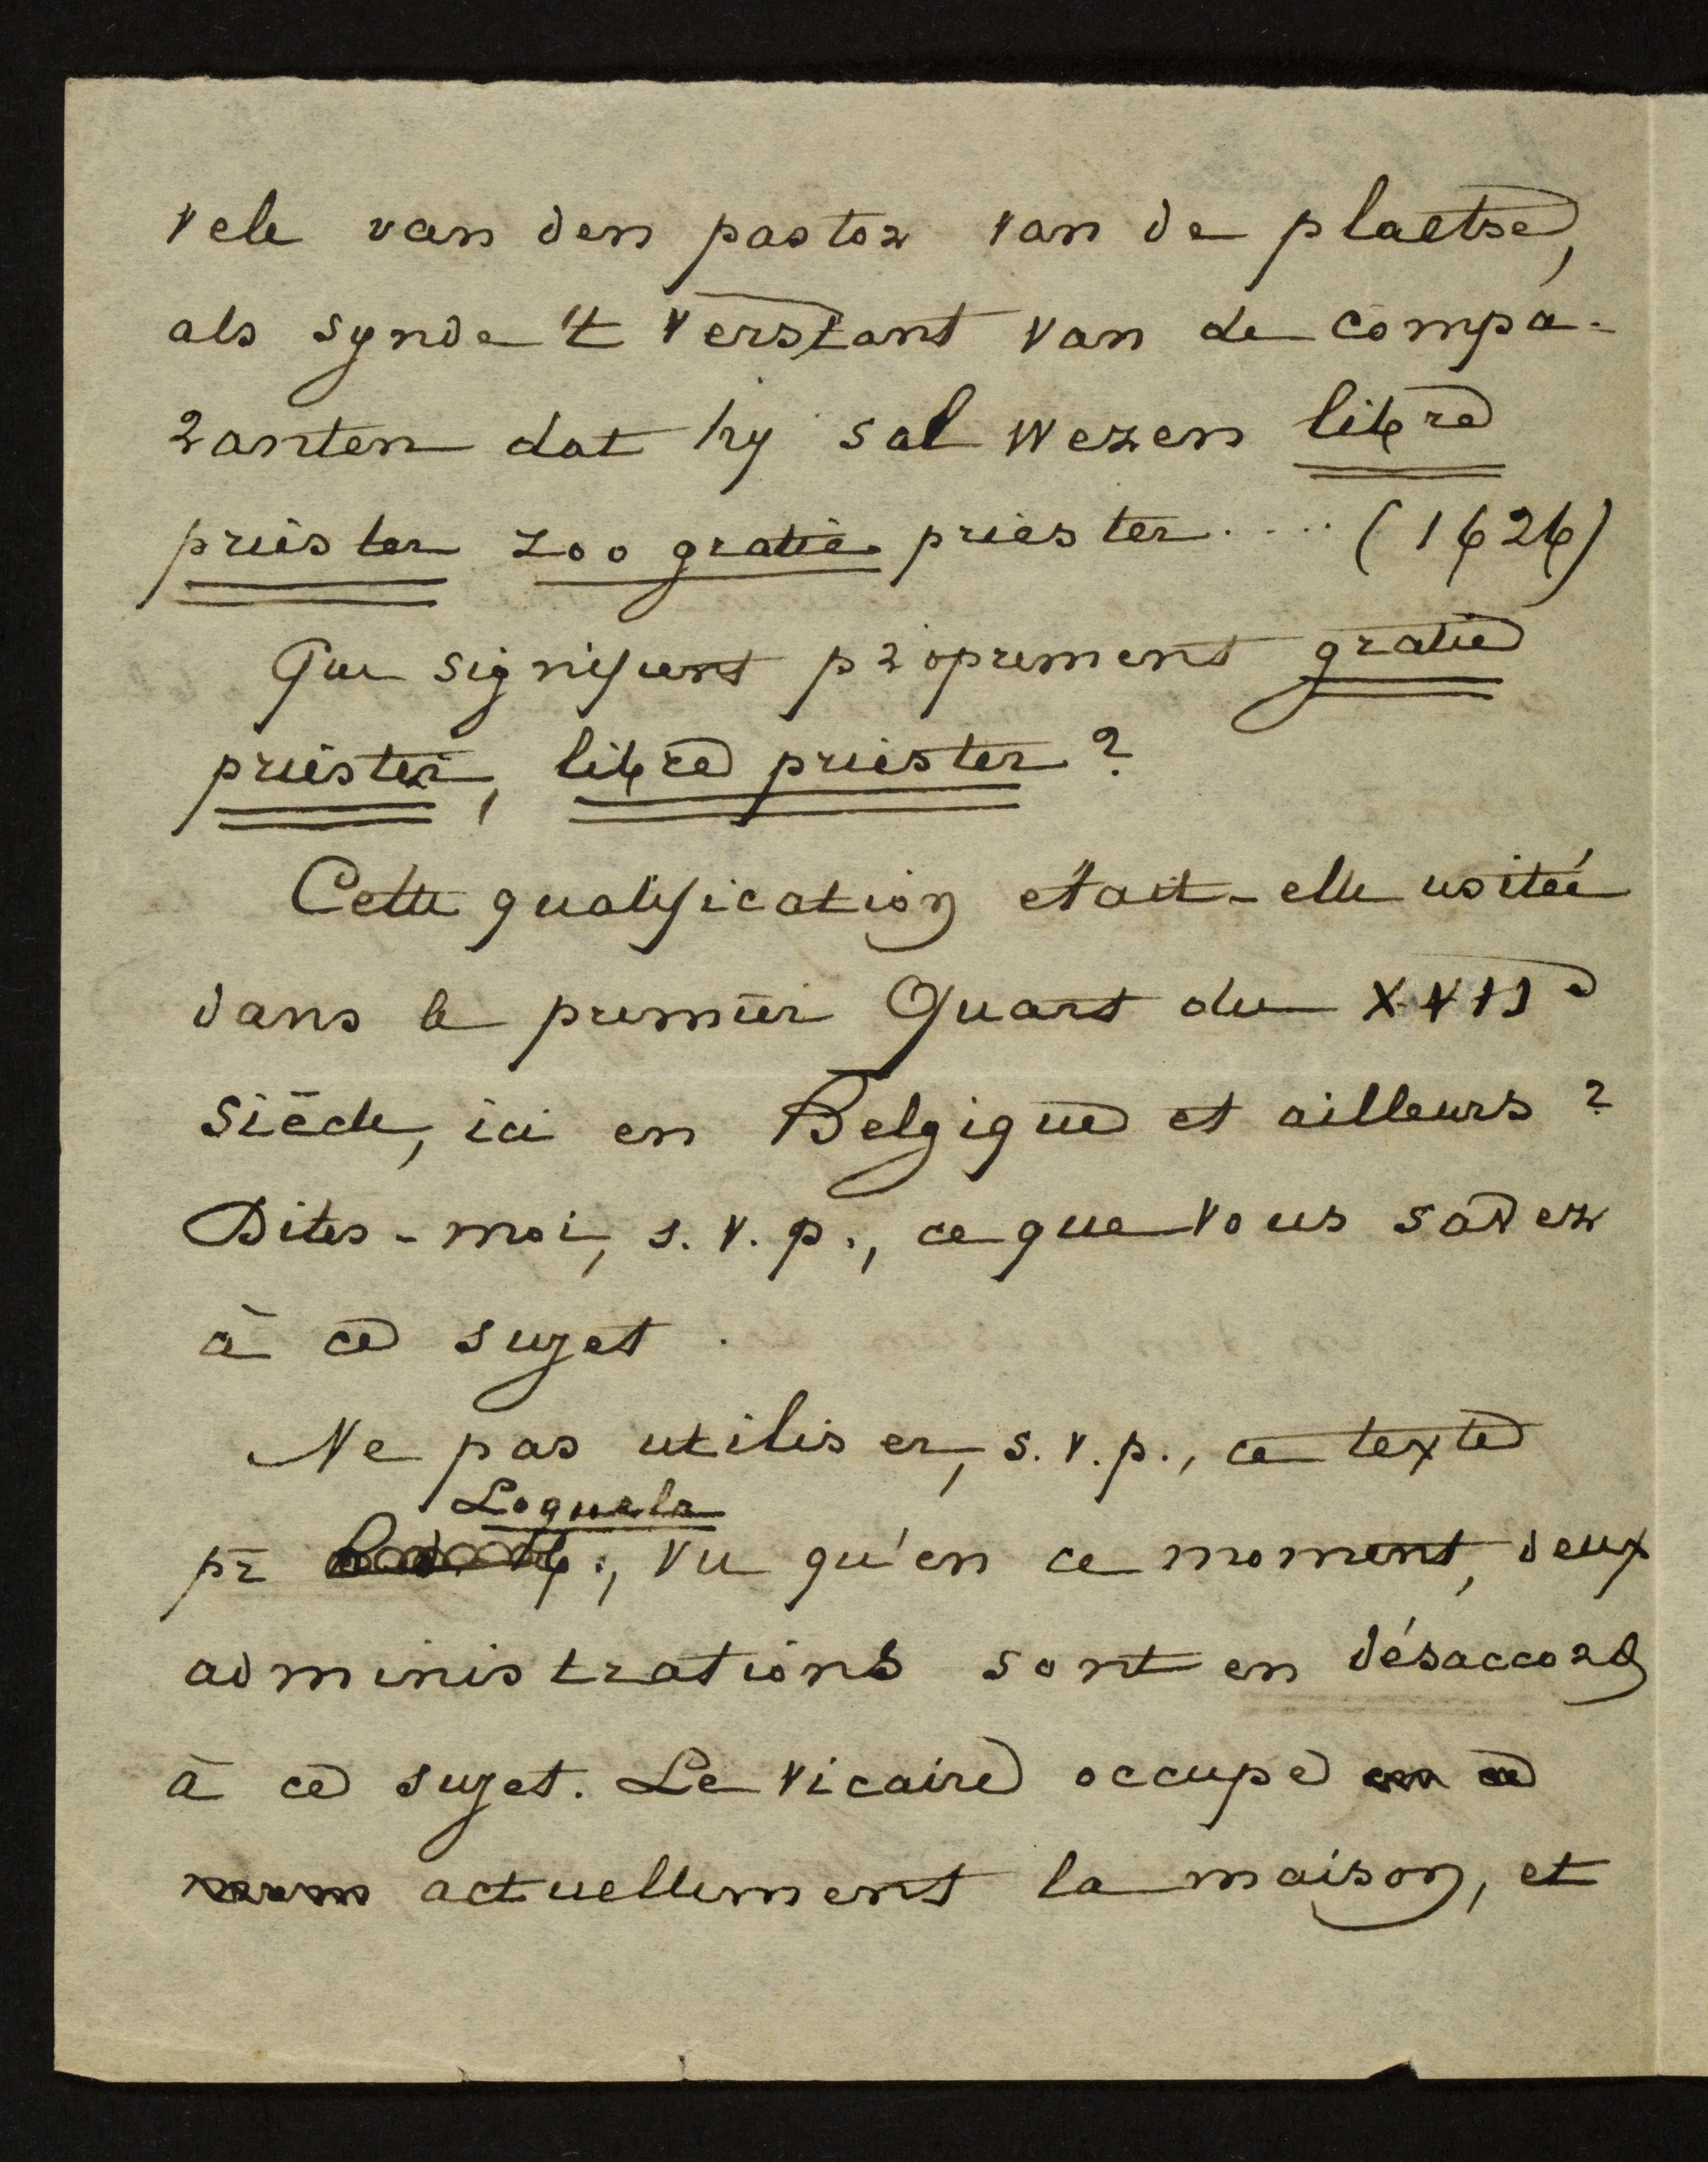 vele van den pastor van de plaetse,
als synde 't verstant van de compa-
ranten dat hy sal wezen libre
priester zoo gratie priester .... (1626)
Que signifient proprement gratie
priester, libre priester ?
Cette qualification était-elle usitée
dans le premier Quart du XVIIe
siècle, ici en Belgique et ailleurs ?
Dites-moi, s.v.p., ce que vous savez
à ce sujet.
Ne pas utiliser, s.v.p., ce texte
Loquela
pr , vu qu'en ce moment, deux
administrations sont en désaccord
à ce sujet. Le vicaire occupe en ce
actuellement la maison, et